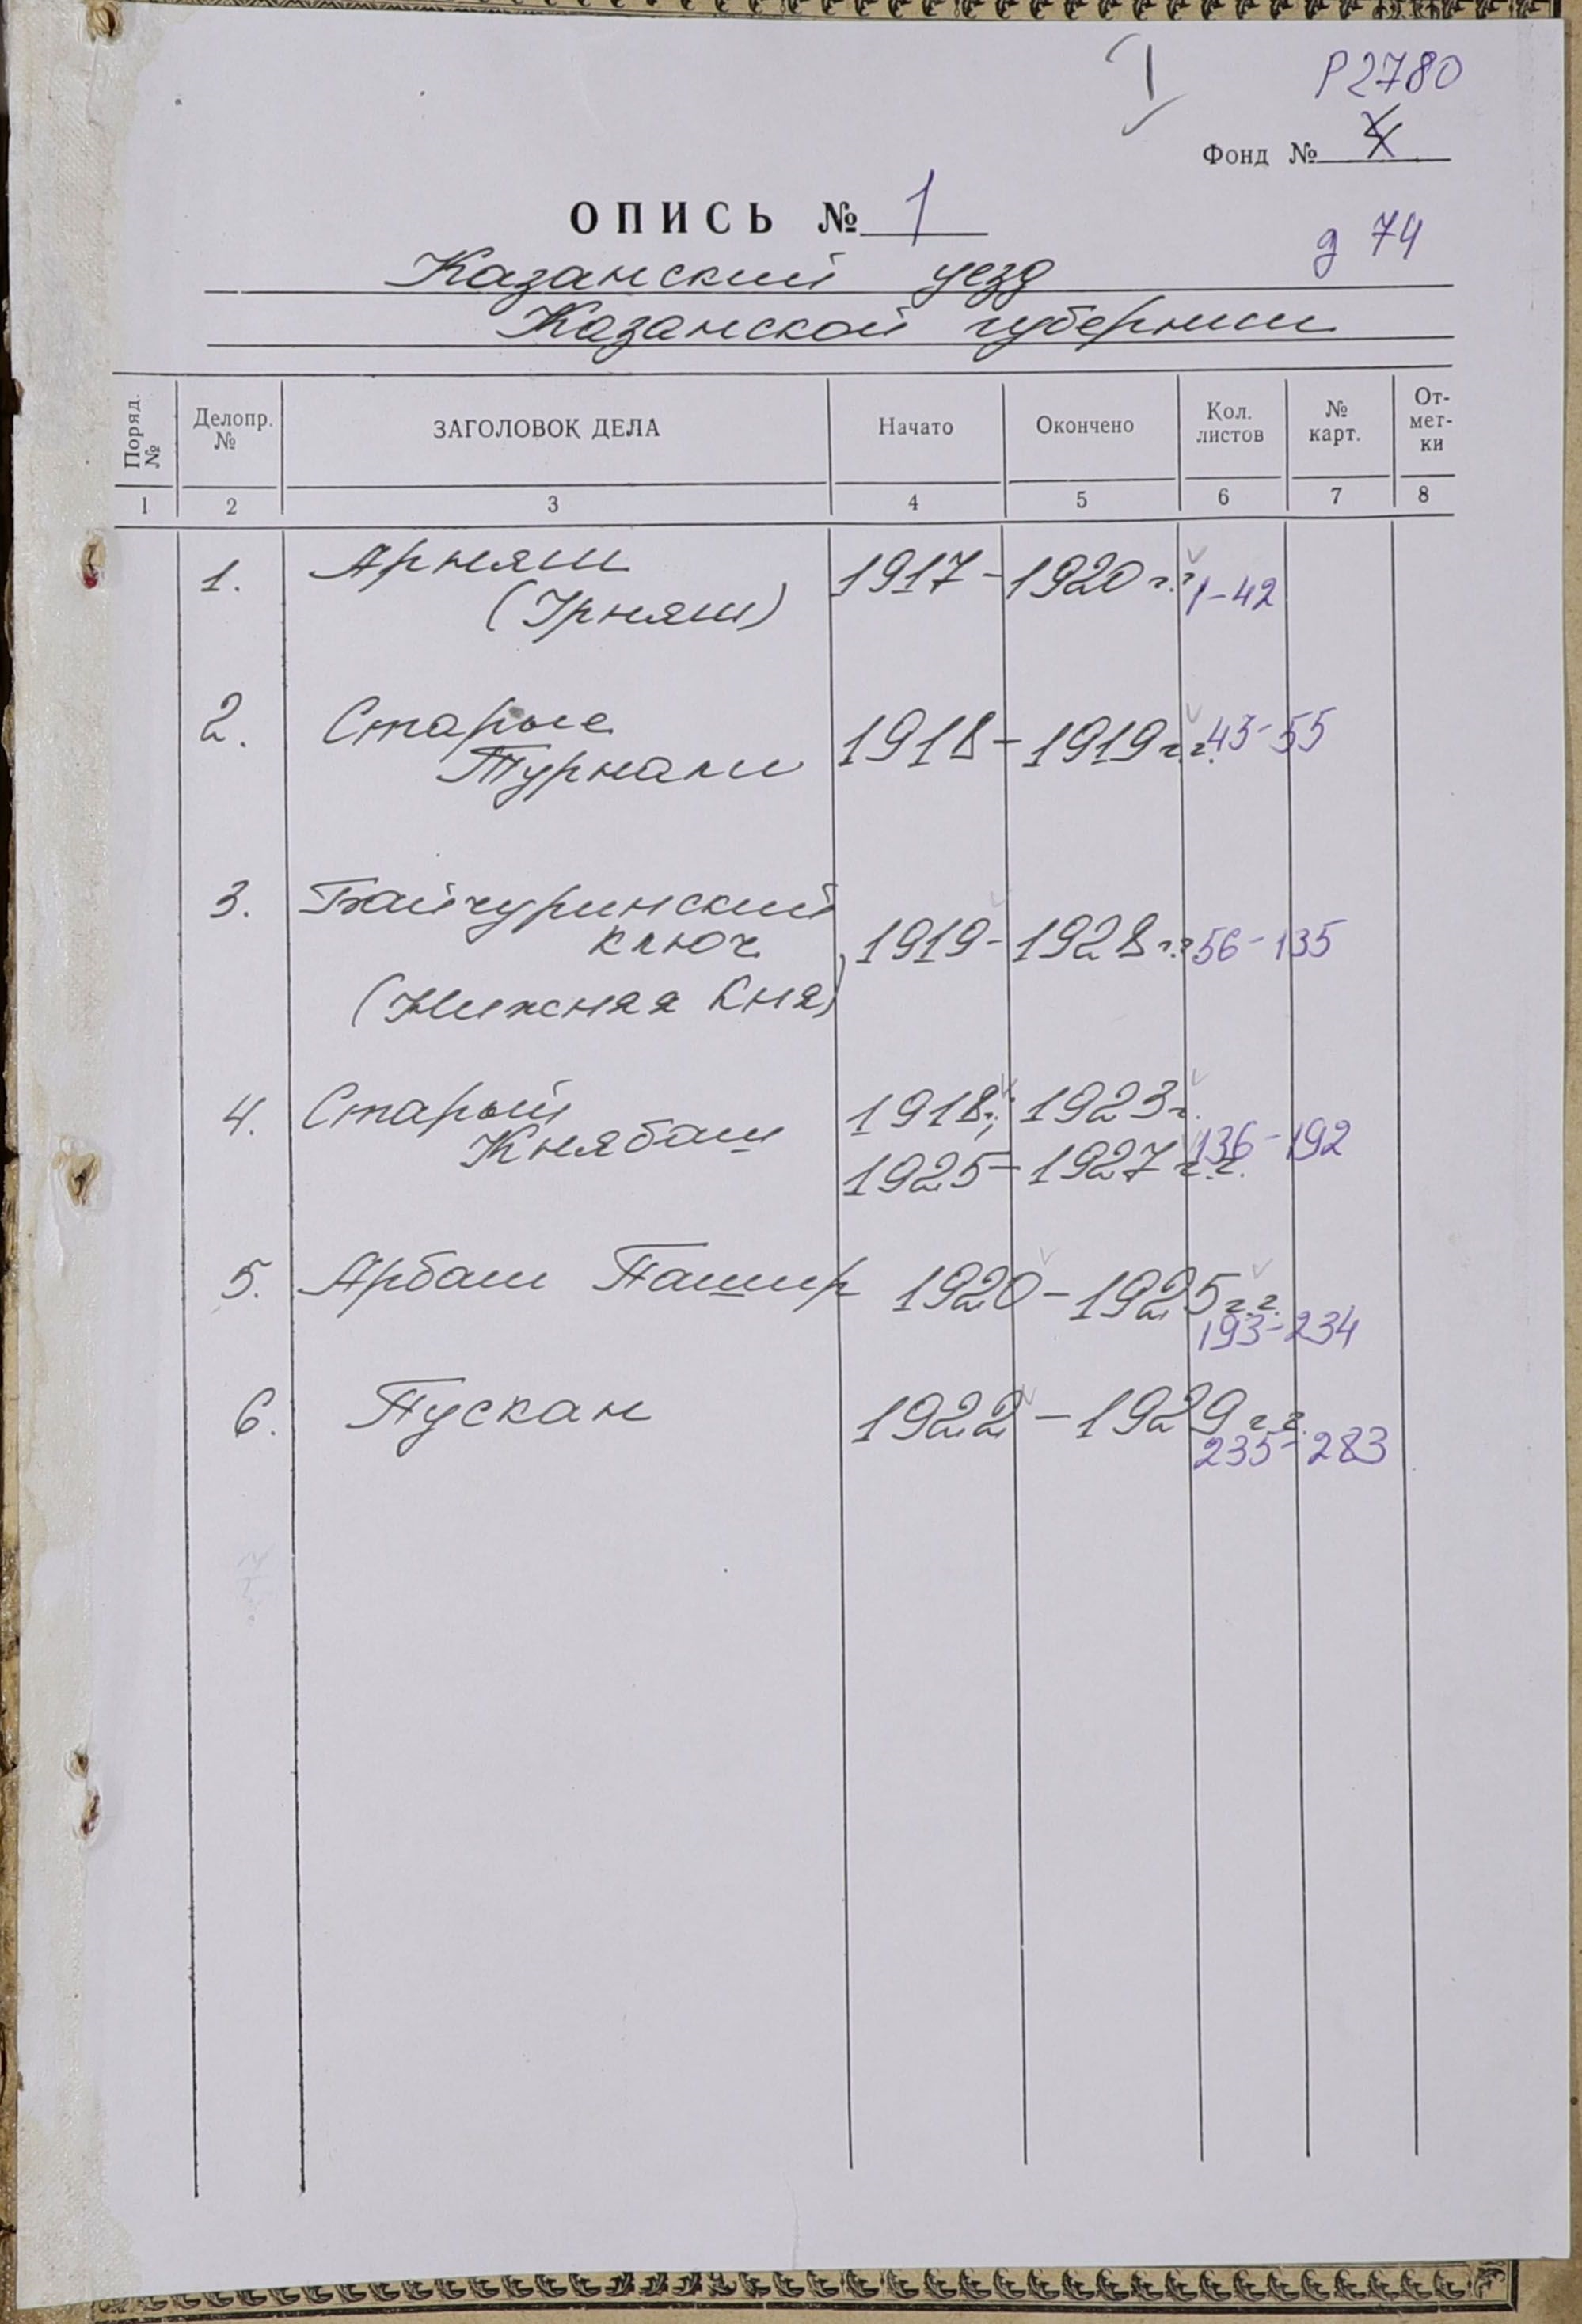 Р2780
Фонд № 4
ОПИСЬ № 1
д 74
Казанский уезд
Казанской губернии
Поряд. №
Делопр. №
ЗАГОЛОВОК ДЕЛА
Начато
Окончено
Кол. листов
№ карт.
От-мет-ки
1 2 3 4 5 6 7 8
1. Арняш 1917-1920 г.г. 1-42
(Урняш)
2. Старые 1918-1919 г.г. 43-55
Турнали
3. Байчуринский
ключ 1919-1928 г.г. 56-135
(Нижняя Кня)
4. Старый 1918г.; 1923г.
Княбаш 1925-1927 г.г. 136-192
5. Арбаш Пашир 1920-1925 г.г.
193-234
6. Пускан 1922-1929 г.г.
235-283